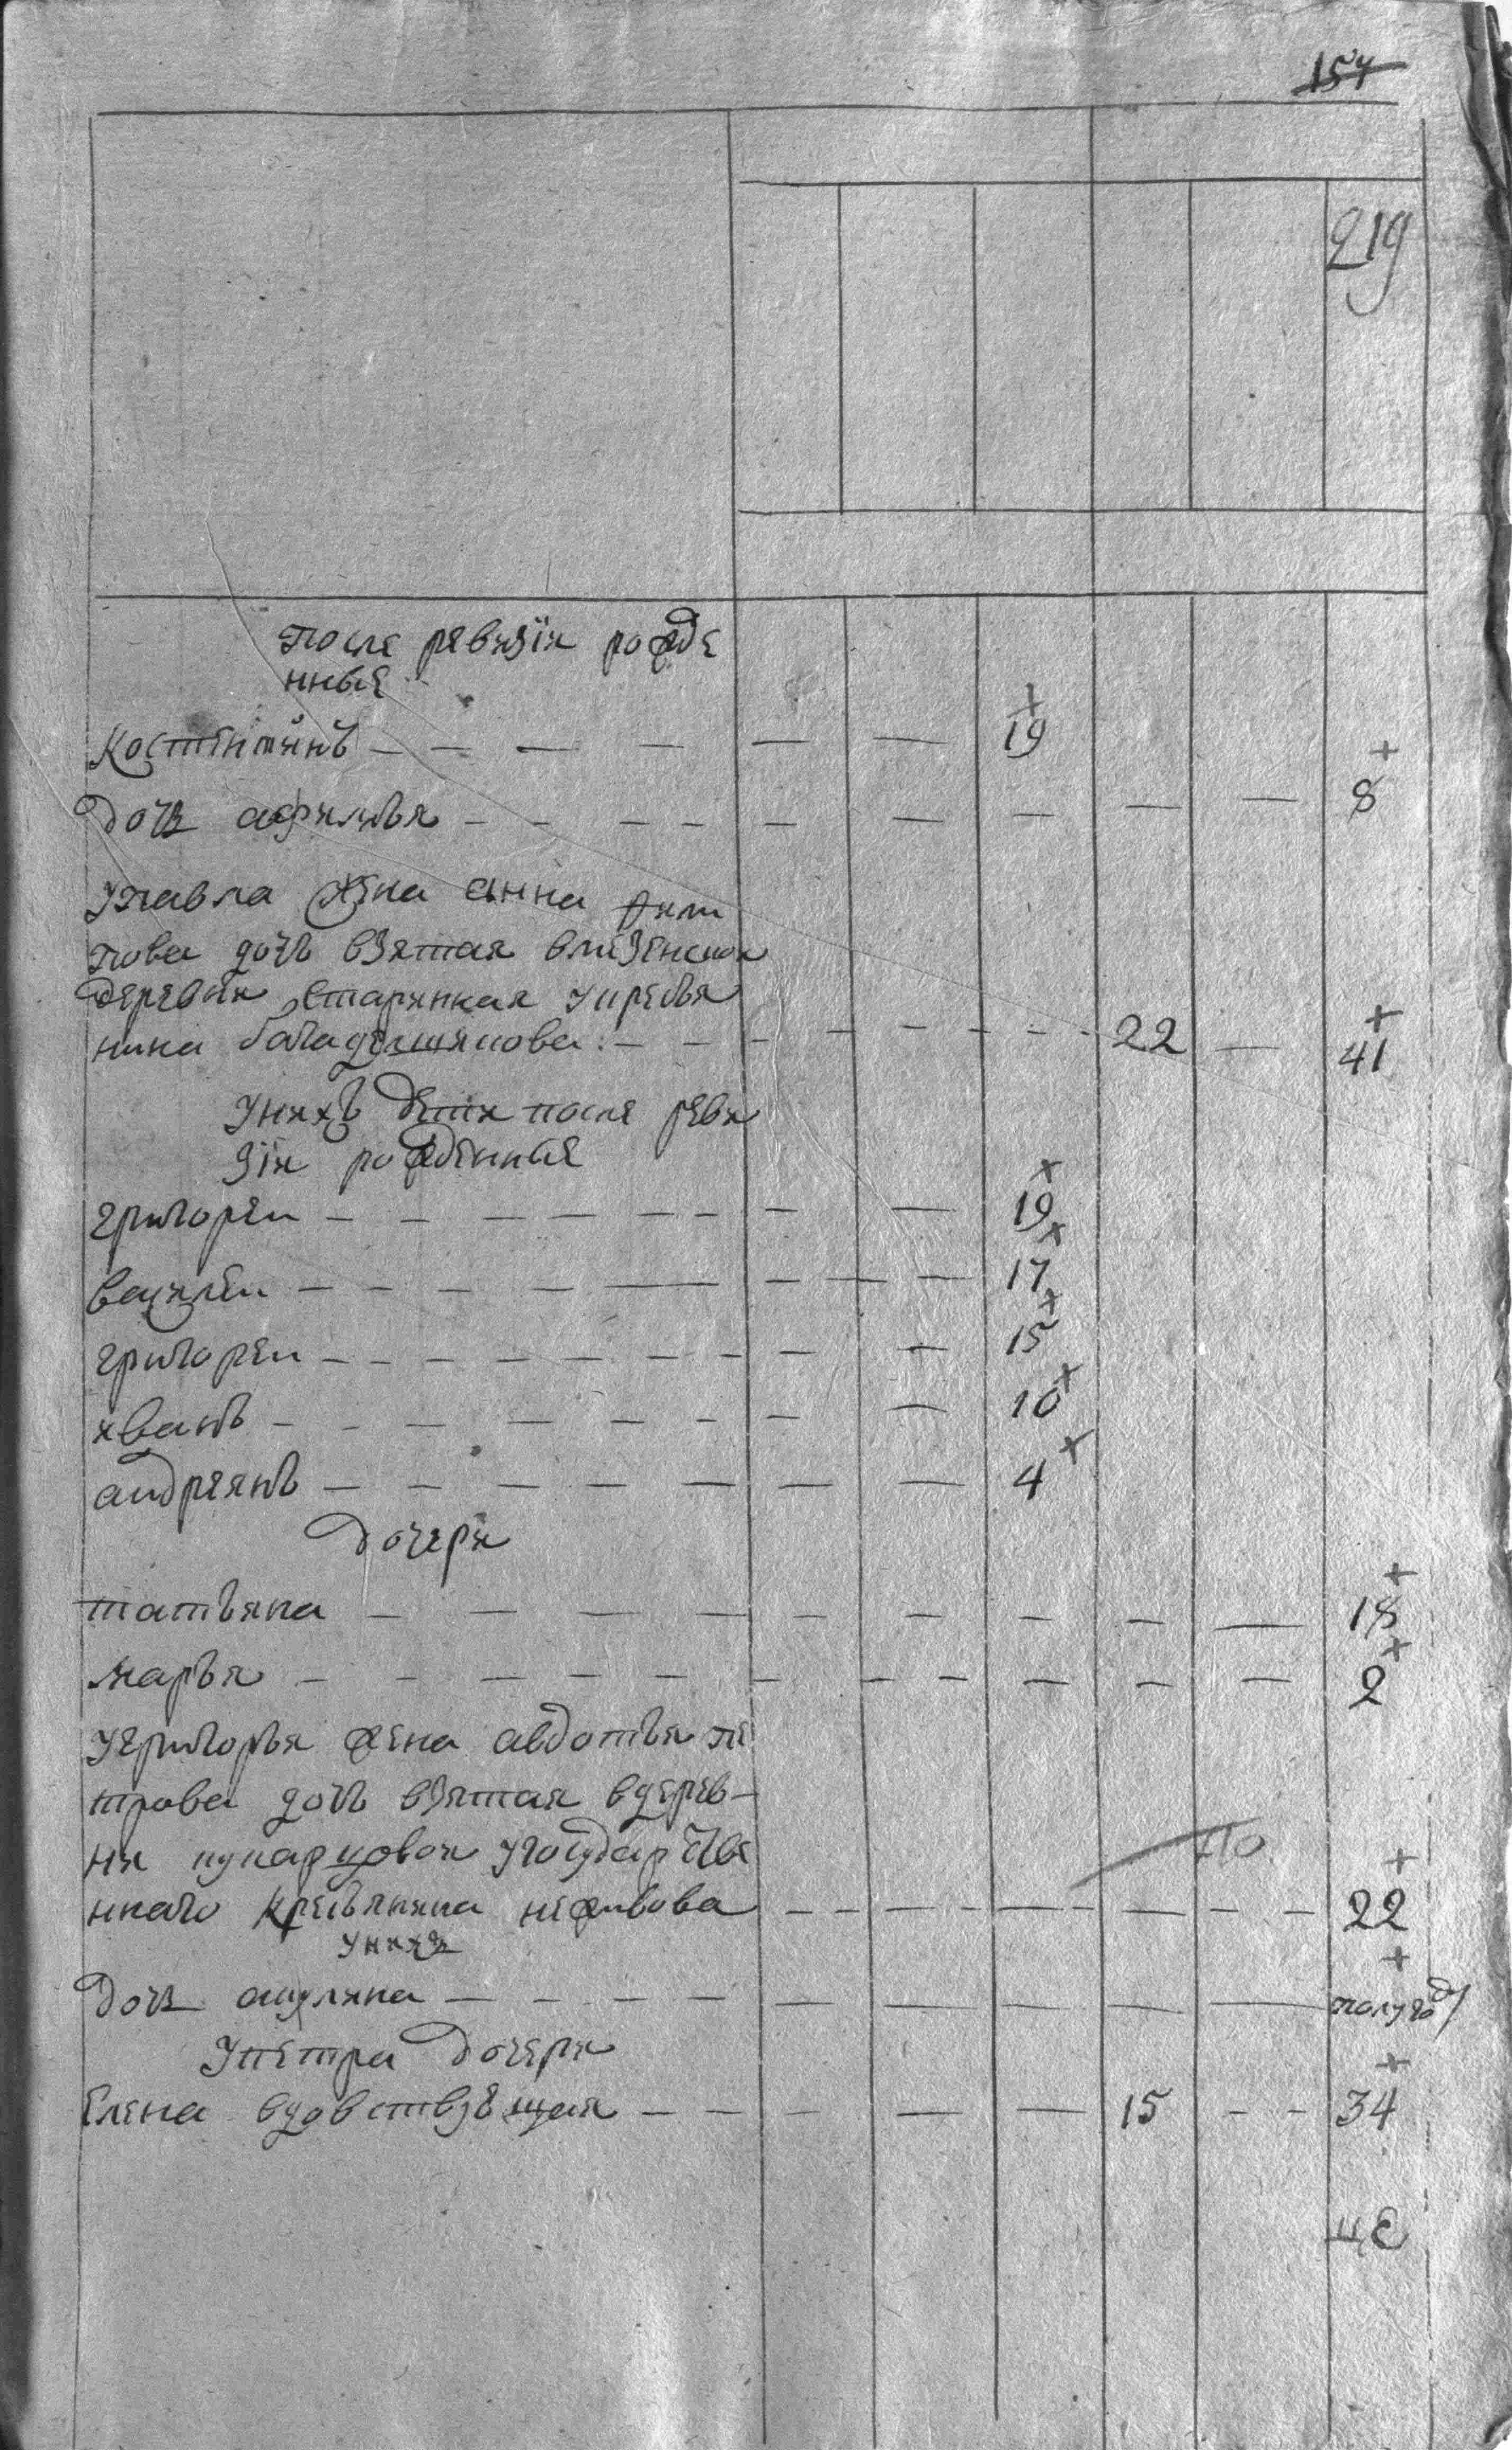 154
219
после ревизiи рожде
нные
костентинъ — — — — — — 19
дочь афимья — — — — — — — — — 8
Упавла жена анна фили
пова дочь взятая
деревни старинная укрестья
нина — — — — — 22 — 41
Унихъ дети после реви
зiи рожденные
григореи — — — — — — — — 19
василеи — — — — — — — — 17
григореи — — — — — — — — — 15
иванъ — — — — — — — — 10
андреянъ — — — — — — — 4
дочери
татьяна — — — — — — — — — 18
марья — — — — — — — — — — — 2
Угригорья жена авдотья пе
трова дочь взятая вдерев-
ни угосударстве
ннаго крестьянина — — — — — — — 22
унихъ
дочь акулина — — — — — — — — — полугоду
Упетра дочери
Елена вдовствующая — — — — — 15 — — 34